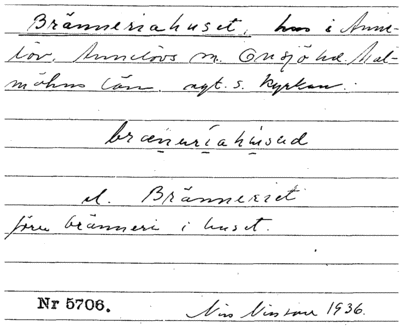 Bränneriahuset, hus i Anne-
löv, Annelövs sn. Onsjö hd. Mal-
möhus län. nyt. s. kyrkan.
brænuríahúsud
el. Bränneriet
förr bränneri i huset.
Nr 5706. Nils Nilsson 1936.